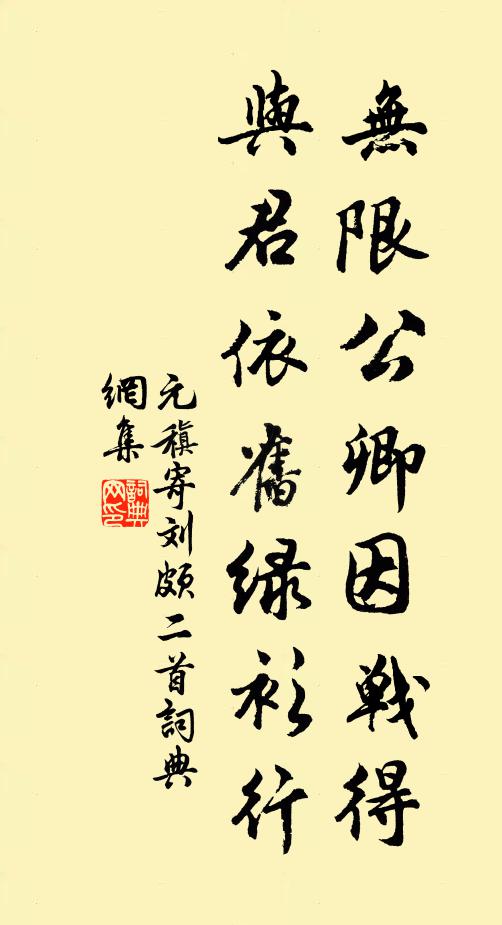 無限公卿因戰得
與君依舊緑衫行
元稹寄刘頗二首詞典
網集
詞典
网印